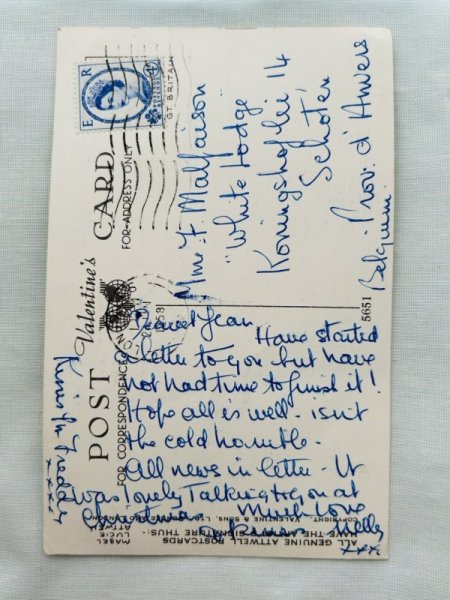 Valentine's
POST CARD
FOR CORRESPONDENCE
FOR ADDRESS ONLY
E R
POSTAGE
GT. BRITAIN
1958
Dearest Jean
Have started
a letter to you but have
not had time to finish it!
Hope all is well - isn't
the cold horrible.
All news in letter - It
was lovely talking to you at
Christmas
Much love
xxx
xxxx
Mme F. Malfaison
"White Lodge
Koningshoflei 14
Schoten
Prov. d'Anvers
Belgium
5651
ALL GENUINE ATTWELL POSTCARDS
HAVE THE ARTIST'S SIGNATURE THUS:-
MABEL
LUCIE
ATTWELL
COPYRIGHT. VALENTINE & SONS, LTD. DUNDEE AND LONDON